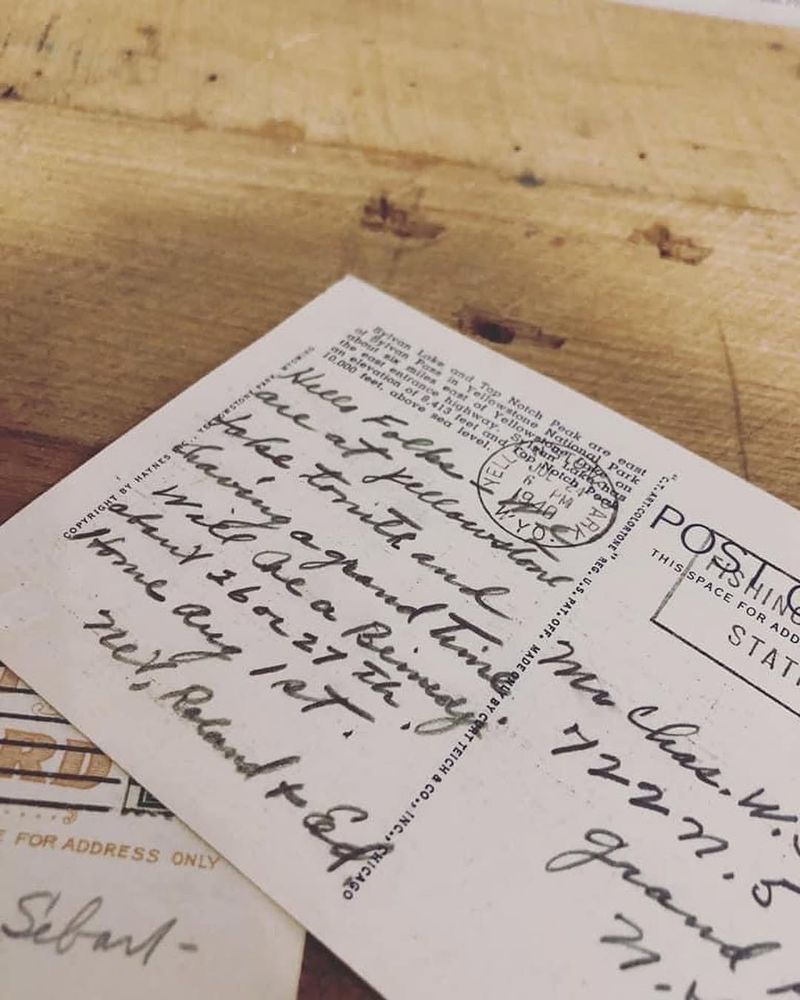 Sylvan Lake and Top Notch Peak are east
of Sylvan Pass in Yellowstone National Park
about six miles east of Yellowstone Lake on
the east entrance highway. Sylvan Lake has
an elevation of 8,413 feet and Top Notch Peak
10,000 feet, above sea level.
COPYRIGHT BY HAYNES INC. YELLOWSTONE PARK, WYOMING
Hello Folks - we
are at yellowstone
take tonite and
having a grand time
Will be a
about 26 or 27 th.
Home Aug 1st.
Roland + Ed
YELL PARK
JUL 21
6 PM
1949
WYO.
"C.T. ART-COLORTONE" REG. U.S. PAT. OFF. MADE ONLY BY CURT TEICH & CO., INC., CHICAGO
POST C
THIS SPACE FOR ADD
FISHING
STAT
Mr Chas. W.
722 N. 5
Grand
N.
RD
E FOR ADDRESS ONLY